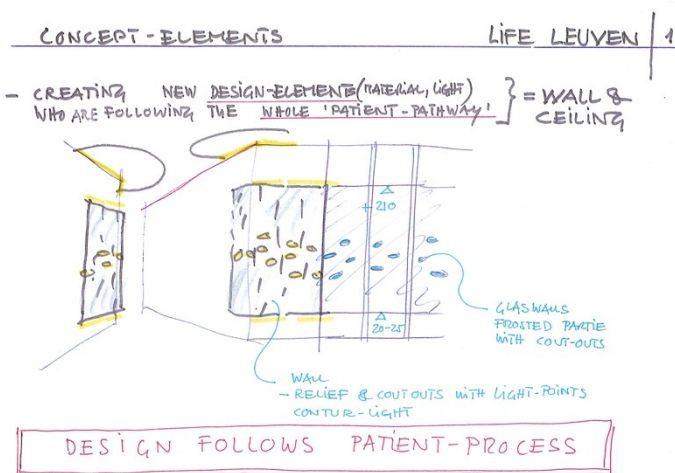 CONCEPT-ELEMENTS
LIFE LEUVEN 1
- CREATING NEW DESIGN-ELEMENTS (MATERIAL, LIGHT)
WHO ARE FOLLOWING THE WHOLE 'PATIENT-PATHWAY'
= WALL &
CEILING
+210
20-25
GLASWALLS
FROSTED PARTIE
WITH COUT-OUTS
WALL
- RELIEF & COUTOUTS WITH LIGHT-POINTS
CONTUR-LIGHT
DESIGN FOLLOWS PATIENT-PROCESS